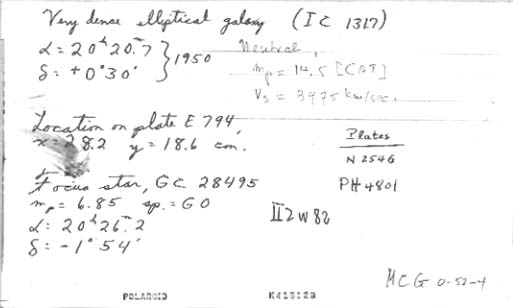 Very dense elliptical galaxy (IC 1317)
α = 20ʰ 20.ᵐ7 } 1950
δ = +0°30′
Neutral,
mₚ = 14.5 [CAT]
Vₛ = 3975 km/sec.
Location on plate E 794,
x = 28.2 y = 18.6 cm.
Focus star, GC 28495
mₚ = 6.85 sp. = G0
α: 20ʰ 26.ᵐ2
δ: -1° 54′
Plates
N 2546
PH 4801
II Zw 82
MCG 0-52-4
POLAROID K415123